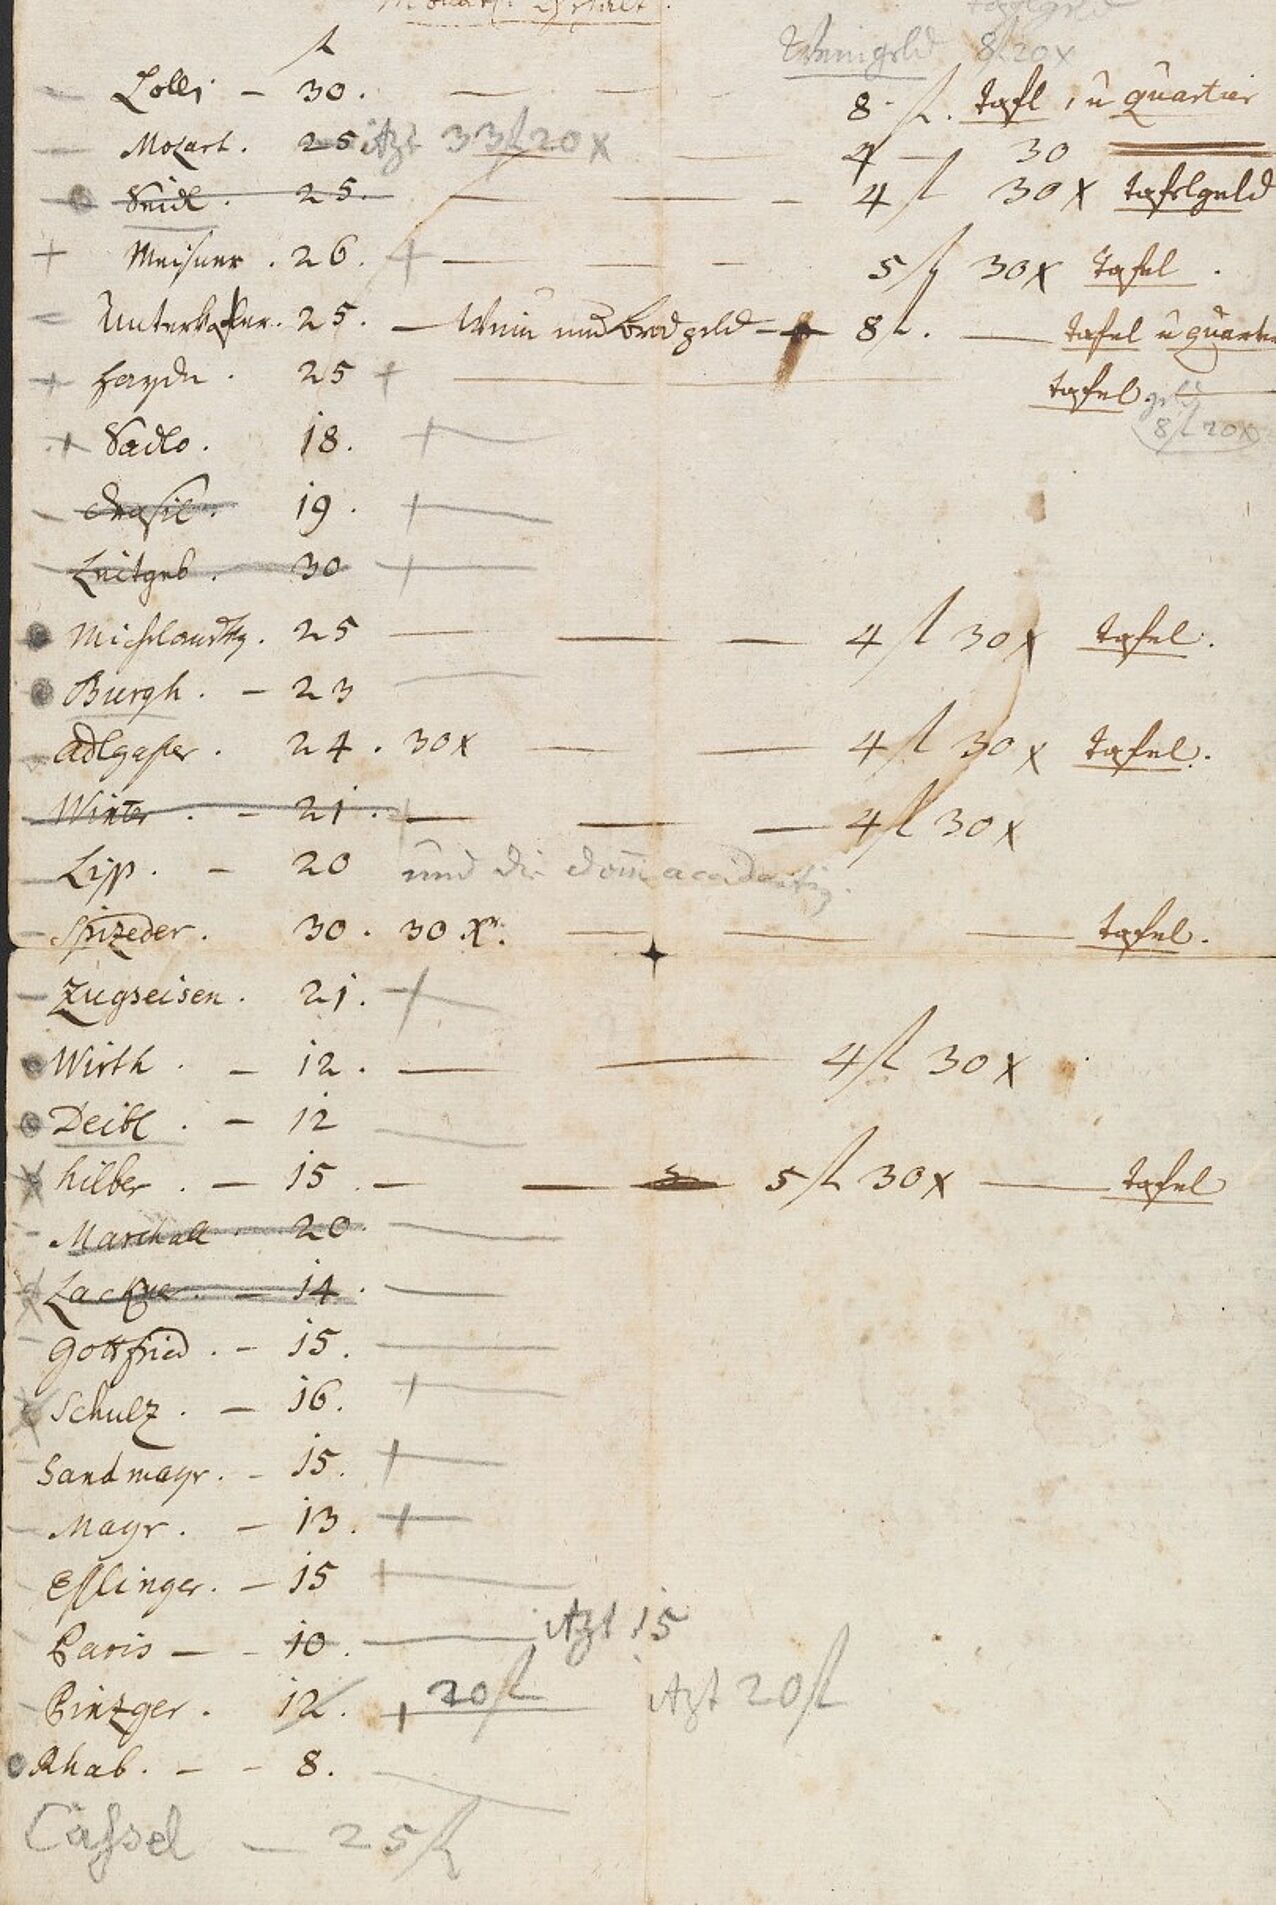 Monatl:
tafelgeld
fl
Weingeld 8 fl 20 x
Lolli – 30. – – – 8 fl. tafl, u quartier
Mozart. 25 itzt 33 fl 20 x – 4 – 30
Seidl. 25. – – – 4 fl 30 x tafelgeld
+ Meisner. 26. + – – – 5 fl 30 x tafel.
Unterkofler. 25. – Wein und brod geld – 8 fl. – tafel u quartier
+ Haydn. 25 + – tafel geld
8 fl 20 x
+ Sadlo. 18. +
Drasil. 19. +
Leitgeb. 30 +
25 – – – 4 fl 30 x tafel.
Burgh. – 23
Adlgasser. 24. 30 x – – 4 fl 30 x tafel.
Winter. – 21. + – – – 4 fl 30 x
Lipp. – 20 und die
Spizeder. 30. 30 xr. – – – tafel.
Zugseisen. 21. +
Wirth. – 12. – – 4 fl 30 x
Deibl. – 12
hilber. – 15. – – 5 fl 30 x – tafel
Marschall. 20.
Lackner. – 14.
Gottfried. – 15.
Schulz. – 16. +
Sandmayr. – 15. +
Mayr. – 13. +
Esslinger. – 15 +
Paris – – 10. – itzt 15
Pinzger. 12. + 20 fl itzt 20 fl
Rhab. – – 8.
Cassel – 25 fl